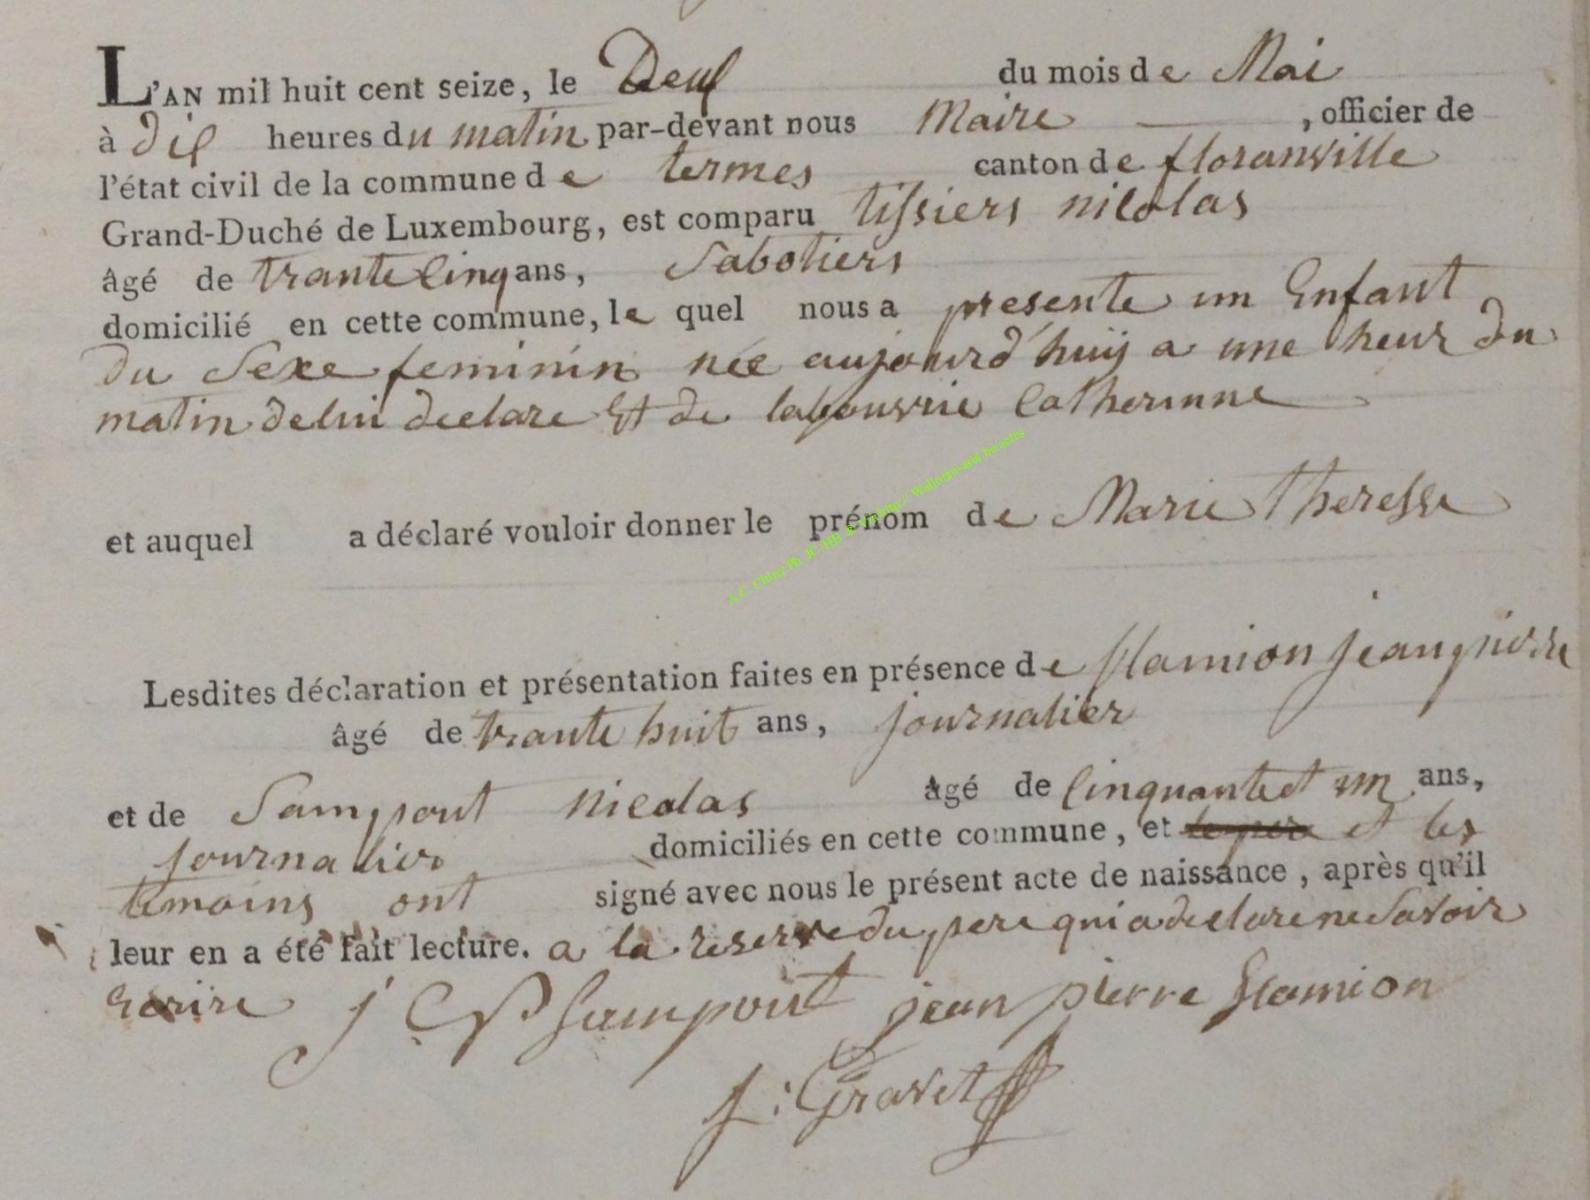 L'AN mil huit cent seize, le Deux du mois de Mai
à dix heures du matin par-devant nous Maire , officier de
l'état civil de la commune de termes canton de floranville
Grand-Duché de Luxembourg, est comparu tissiers nicolas
âgé de trante cinq ans, Sabotiers
domicilié en cette commune, le quel nous a presente un Enfant
du Sexe feminin née aujourd'huij a une heur du
matin de lui declare Et de Catherinne
et auquel a déclaré vouloir donner le prénom de Marie Theresse
Lesdites déclaration et présentation faites en présence de flamion jean pierre
âgé de trante huit ans, journalier
et de Sampont nicolas âgé de Cinquante et un ans,
journalier domiciliés en cette commune, et et les
temoins ont signé avec nous le présent acte de naissance, après qu'il
leur en a été fait lecture. a la reserve du pere qui a declare ne Savoir
Ecrire Sampont jean pierre flamion
j: Gravet